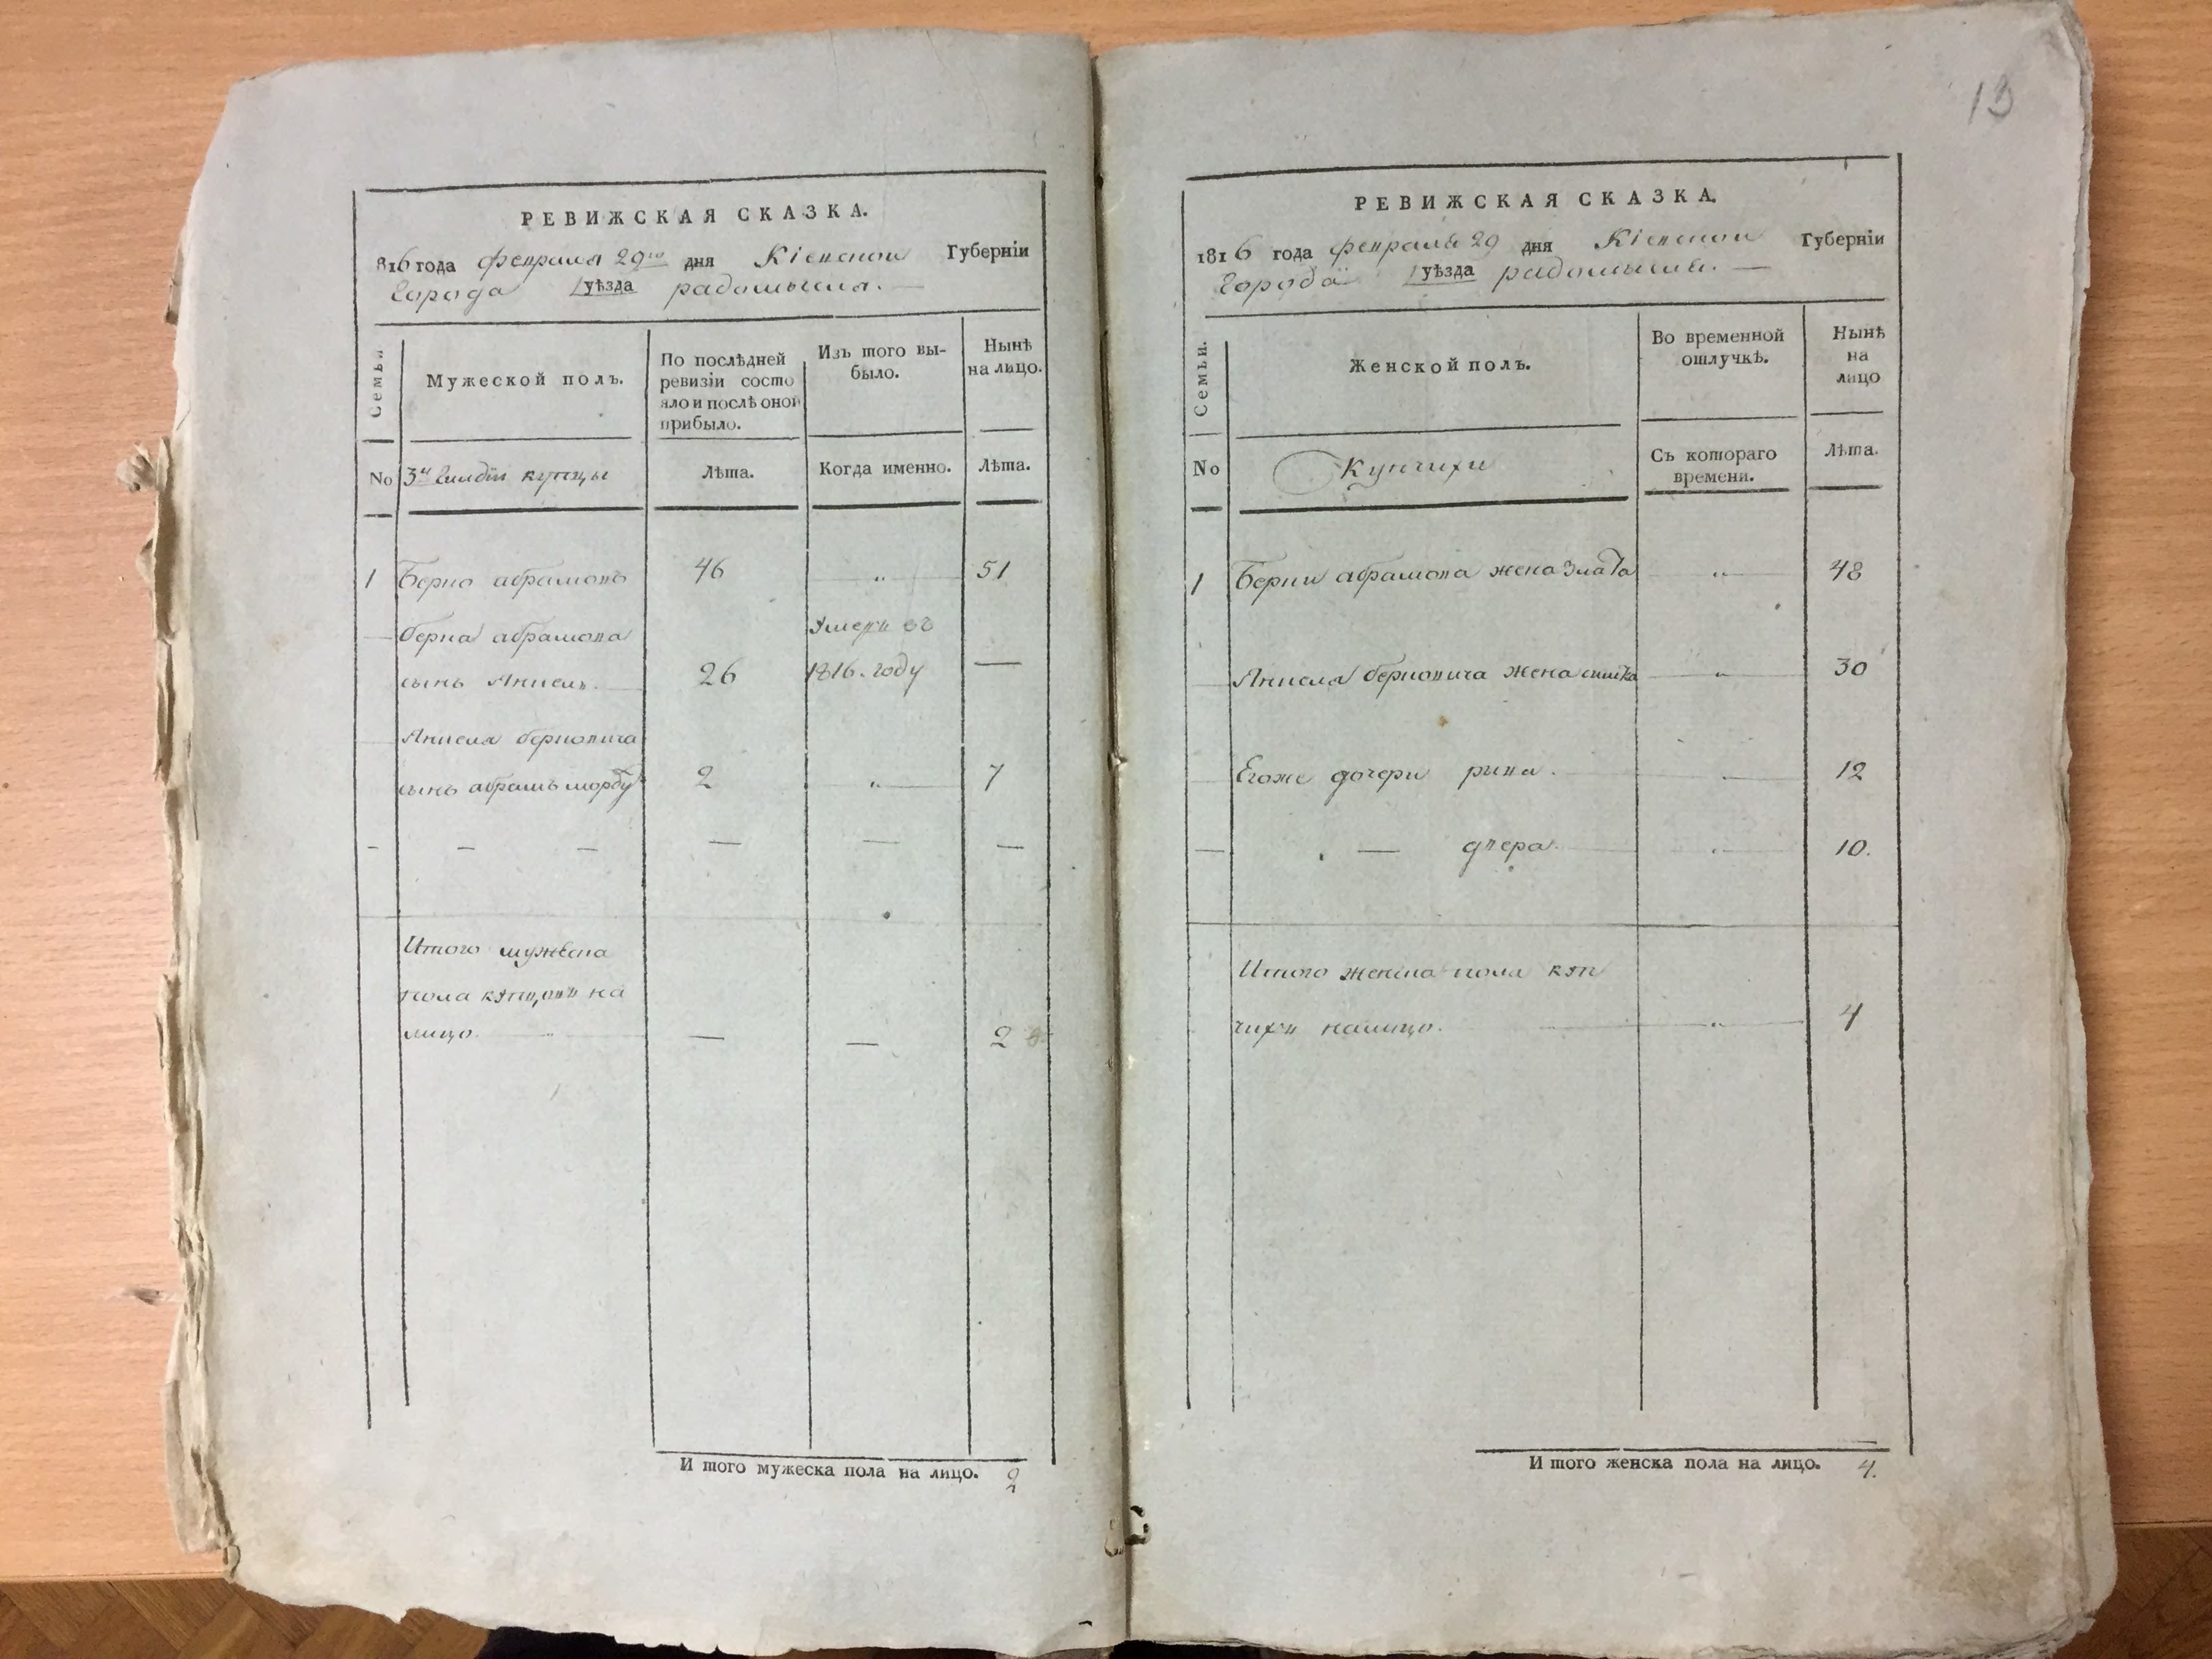 13
РЕВИЖСКАЯ СКАЗКА.
816 года февраля 29го дня Кіевской Губерніи
Города уѣзда радомысля.
Семьи
Мужеской полъ.
По послѣдней ревизіи состояло и послѣ оной прибыло.
Изъ того выбыло.
Нынѣ на лицо.
No 3й Гилдіи купцы Лѣта. Когда именно. Лѣта.
1 Берко абрамовъ 46 " 51
берка абрамова умеръ въ
сынъ Анкель. 26 1816. году —
Анкеля берковича
сынъ абрамъ мордух 2 " 7
— — — — — —
Итого мужеска
пола купцовъ на
лицо. " — — 2
И того мужеска пола на лицо. 2
РЕВИЖСКАЯ СКАЗКА.
1816 года февраля 29 дня Кіевской Губерніи
Города уѣзда радомысля. —
Семьи.
Женской полъ.
Во временной отлучкѣ.
Нынѣ на лицо
No Купчихи Съ котораго времени. Лѣта.
1 Берки абрамова жена Злата " 48
Анкеля берковича жена " 30
Егоже дочери ривка. " 12
— — двера. " 10.
Итого женска пола куп
чихъ налицо. " 4
И того женска пола на лицо. 4.